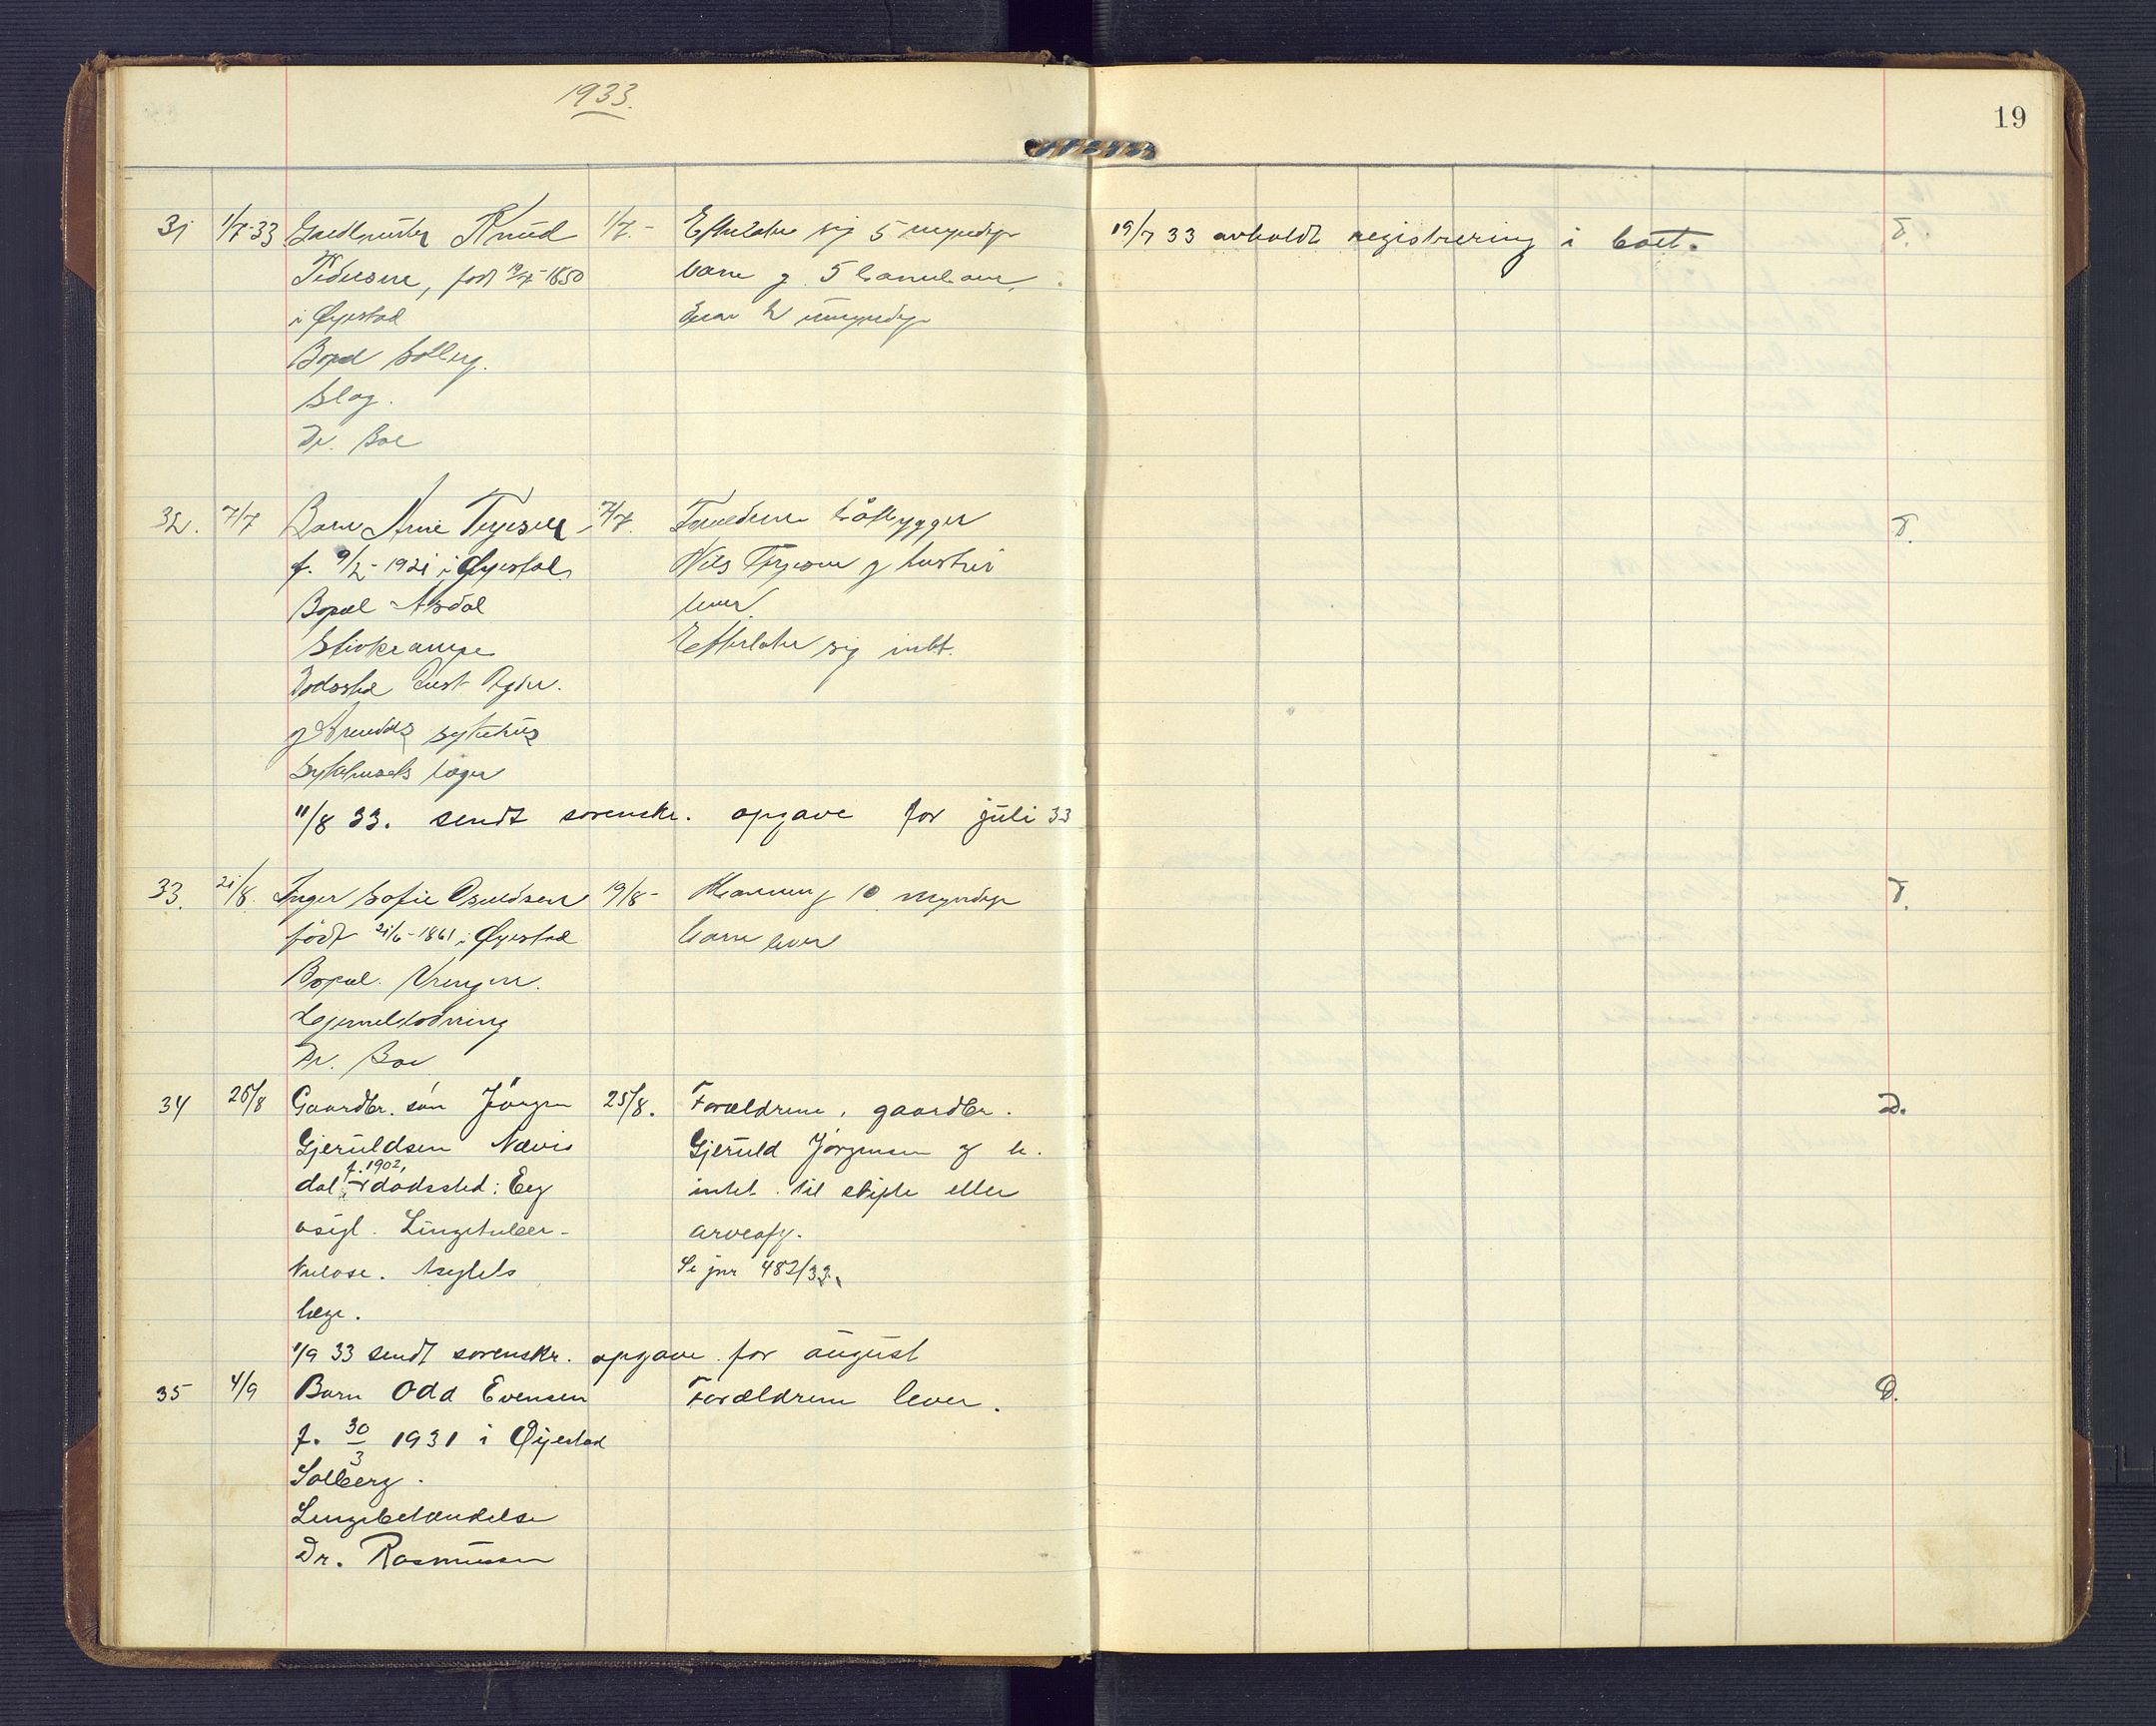 1933.
19
31 1/7-33 Gaardbruker Knud 1/7.- Efterlater sig 5 myndige
Pedersen, født 19/7-1850 barn og 5 barnebarn,
i Øyestad hvorav 2 umyndige
Bopæl Solberg.
Slag.
Dr. Boe
19/7 33 avholdt registrering i boet. D.
32. 7/7 Barn Arne Terjesen 7/7. Forældrene båtbygger
f. 9/2-1921 i Øyestad Nils Terjesen og hustru
Bopæl Asdal lever
Stivkrampe Efterlater sig intet.
Dødssted Aust-Agder
og Arendals sykehus
Sykehusets læger
D.
11/8 33. sendt sorenskr. opgave for juli 33
33. 21/8. Inger Sofie Osuldsen 19/8- Mannen og 10 myndige
født 21/6-1861 i Øyestad barn lever
Bopæl. Vrengen.
Hjerneblødning
Dr. Boe
D.
34 26/8 Gaardbr. søn Jörgen 25/8. Forældrene, gaardbr.
Gjeruldsen Nævis Gjeruld Jörgensen og h.
f. 1902,
dal, dødssted: Eeg intet til skifte eller
asyl. Lungetuber- arveafg.
kulose. Asylets Se jnr 482/33.
læge.
D.
1/9 33 sendt sorenskr. opgave for august
35 4/9 Barn Odd Evensen Forældrene lever.
f. 30/3 1931 i Øyestad
Solberg.
Lungebetændelse
Dr. Rasmussen
D.